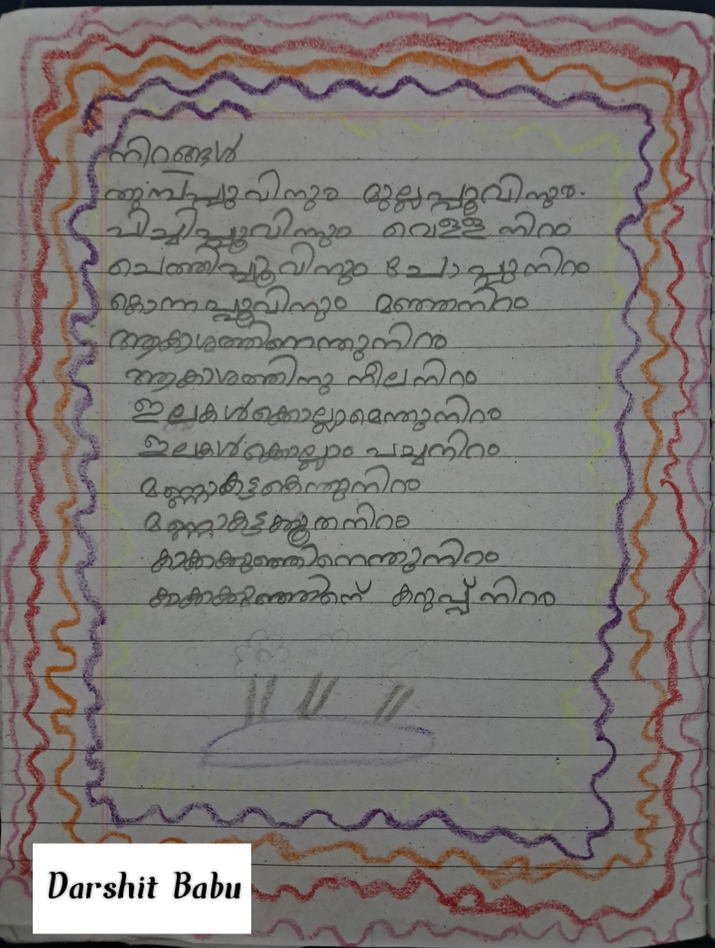 നിറങ്ങൾ
തുമ്പപ്പുവിനും മുല്ലപ്പൂവിനും.
പിച്ചിപ്പൂവിനും വെള്ള നിറം
ചെത്തിപ്പൂവിനും ചോപ്പുനിറം
കൊന്നപ്പൂവിനും മഞ്ഞനിറം
ആകാശത്തിനെന്തുനിറം
ആകാശത്തിനു നീലനിറം
ഇലകൾക്കൊല്ലാമെന്തുനിറം
ഇലകൾക്കൊല്ലാം പച്ചനിറം
മണ്ണാകട്ടകെന്തുനിറം
മണ്ണാകട്ടക്കൂതനിറം
കാക്കക്കുഞ്ഞിനെന്തുനിറം
കാക്കക്കുഞ്ഞിന് കറുപ്പ് നിറം
Darshit Babu